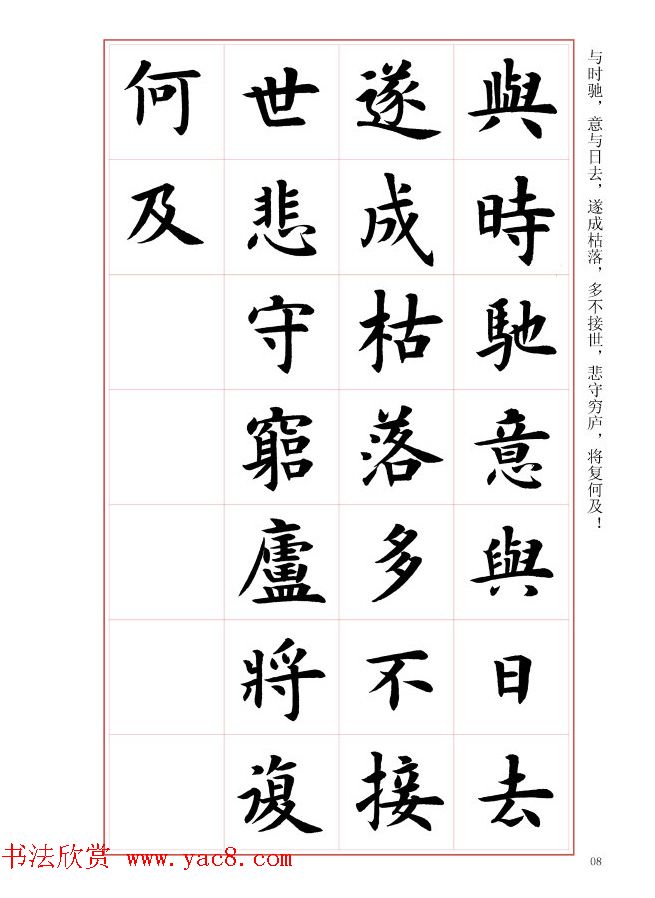 与时驰，意与日去，遂成枯落，多不接世，悲守穷庐，将复何及！
與時馳意與日去
遂成枯落多不接
世悲守窮廬將復
何及
书法欣赏 www.yac8.com
08